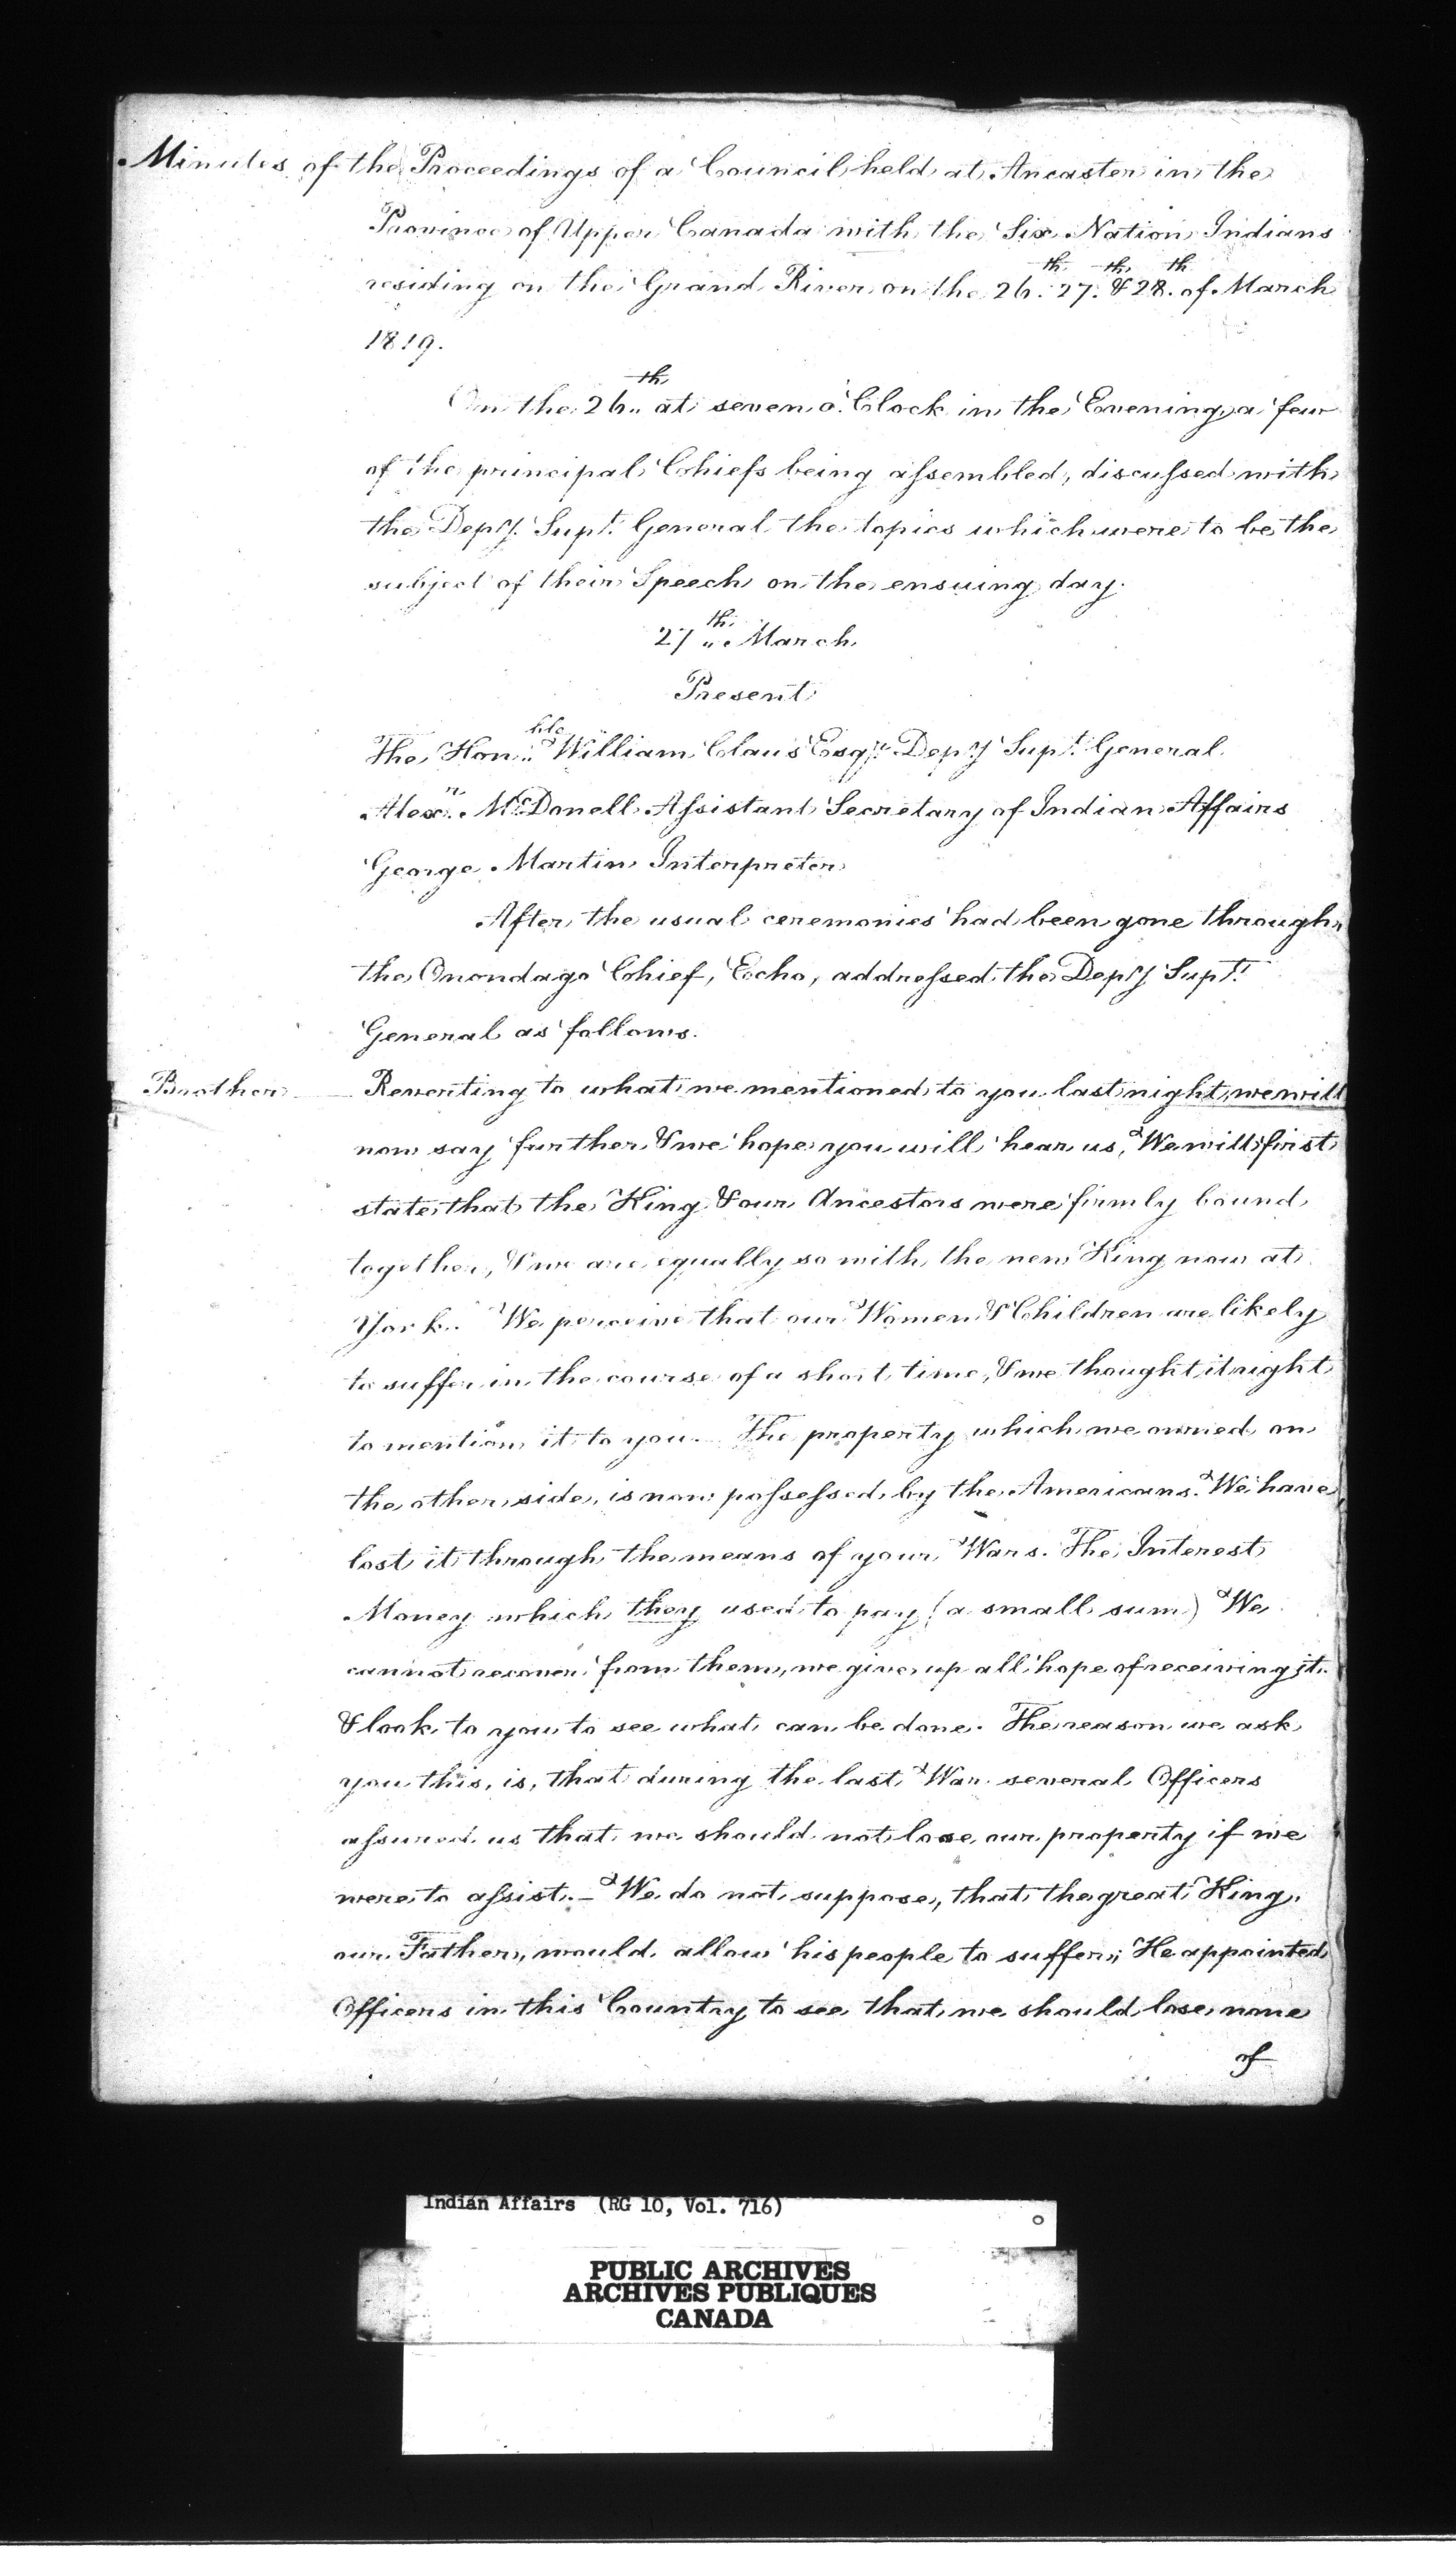 Minutes of the Proceedings of a Council held at Ancaster in the
Province of Upper Canada with the Six Nation Indians
residing on the Grand River on the 26th. 27th. & 28th. of March
1819.
On the 26th.. at seven o'Clock in the Evening, a few
of the principal Chiefs being assembled, discussed with
the Depy. Supt. General the topics which were to be the
subject of their Speech on the ensuing day.
27th.. March
Present
The Honble.. William Claus Esqr. Depy Supt. General
Alexr. McDonell Assistant Secretary of Indian Affairs
George Martin Interpreter
After the usual ceremonies had been gone through,
the Onondaga Chief, Echo, addressed the Depy Supt.
General as follows.
Brother — Reverting to what we mentioned to you last night, we will
now say further & we hope you will hear us, We will first
state that the King & our Ancestors were firmly bound
together, & we are equally so with the new King now at
York. We perceive that our Women & Children are likely
to suffer in the course of a short time, & we thought it right
to mention it to you. The property which we owned on
the other side, is now possessed by the Americans. We have
lost it through the means of your Wars. The Interest
Money which they used to pay (a small sum) We
cannot recover from them, we give up all hope of receiving it.
& look to you to see what can be done. The reason we ask
you this, is, that during the last War several Officers
assured us that we should not lose our property if we
were to assist. – We do not suppose, that the great King,
our Father, would allow his people to suffer; He appointed
Officers in this Country to see that we should lose none
of
Indian Affairs (RG 10, Vol. 716)
PUBLIC ARCHIVES
ARCHIVES PUBLIQUES
CANADA